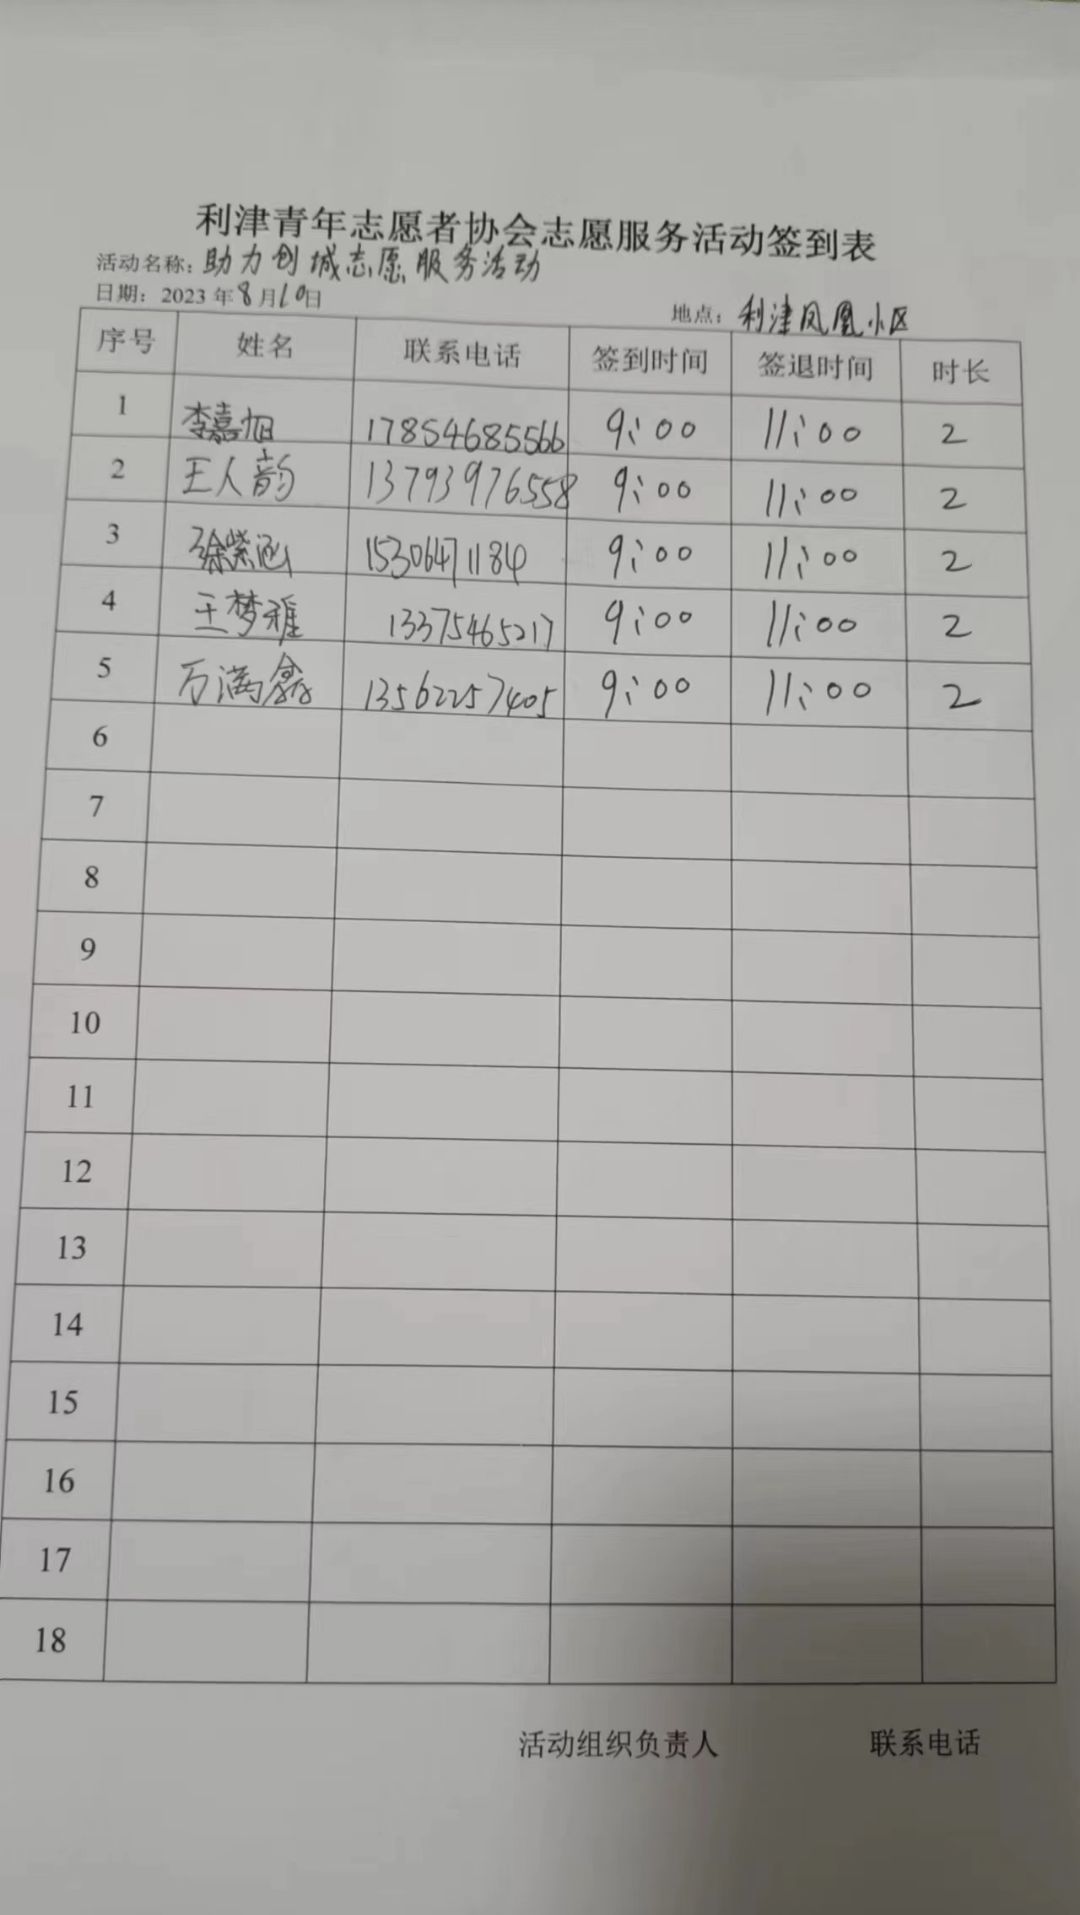 利津青年志愿者协会志愿服务活动签到表
活动名称：助力创城志愿服务活动
日期：2023年8月10日 地点：利津凤凰小区
序号 姓名 联系电话 签到时间 签退时间 时长
1 李嘉旭 17854685566 9:00 11:00 2
2 王人韵 13793976558 9:00 11:00 2
3 徐紫涵 15306471184 9:00 11:00 2
4 王梦雅 13375465217 9:00 11:00 2
5 万满鑫 13562257405 9:00 11:00 2
6
7
8
9
10
11
12
13
14
15
16
17
18
活动组织负责人 联系电话